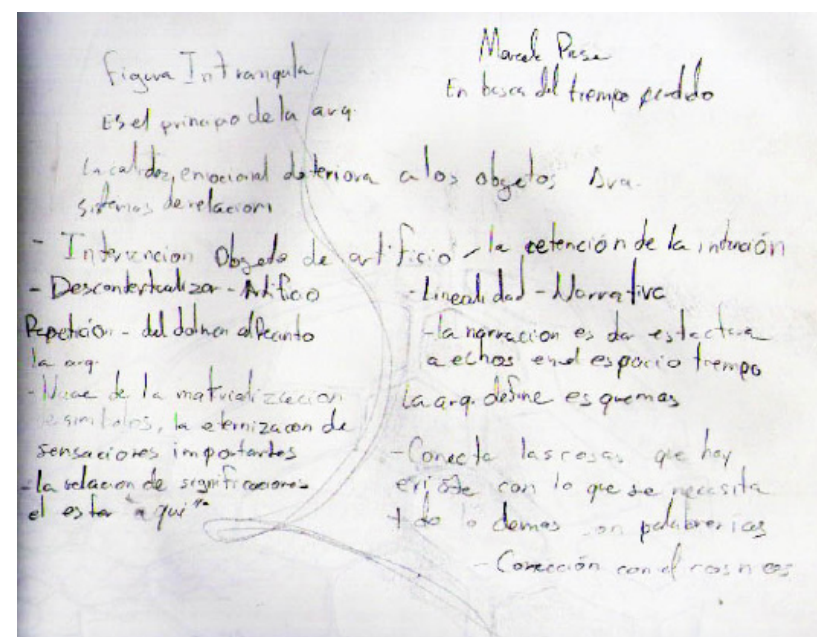 Figura Intranquila
Es el principo de la arq.
Marcel
En busca del tiempo perdido
La calidez, emocional deteriora a los objetos
sistemas de relacion
- Intervencion Objeto de artificio - la retención de la intución
- Descontextualizar - Artificio
- Linealidad - Narrativa
Repeticion - del dolmen al Recinto
la arq.
- Nace de la matrializacion
la eternizacon de
sensaciones importantes
- la relacion de significaciones
el estar "aqui"
- la narracion es dar estactura
a echos en el espacio tiempo
La arq. define esquemas
- Conecta las cosas que hay
con lo que se necesita
lo demas son palabrerias
- Conección con el